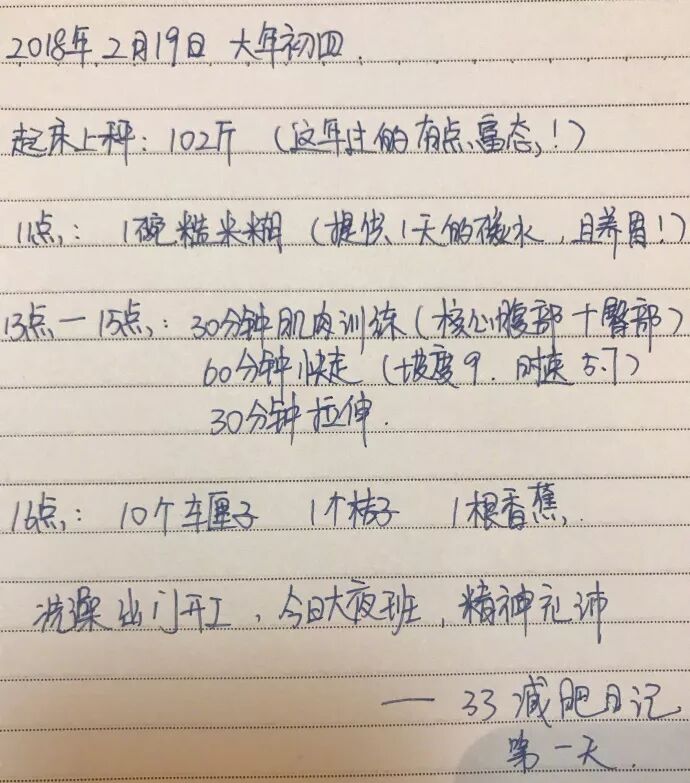 2018年2月19日 大年初四.
起床上秤: 102斤 (这年过的有点富态!)
11点: 1碗糙米糊 (提供1天的碳水, 且养胃!)
13点一15点: 30分钟肌肉训练 (核心腹部+臀部)
60分钟快走 (坡度9. 时速5.7)
30分钟拉伸.
16点: 10个车厘子 1个桔子 1根香蕉.
洗澡出门开工, 今日大夜班, 精神充沛
—33减肥日记
第一天.